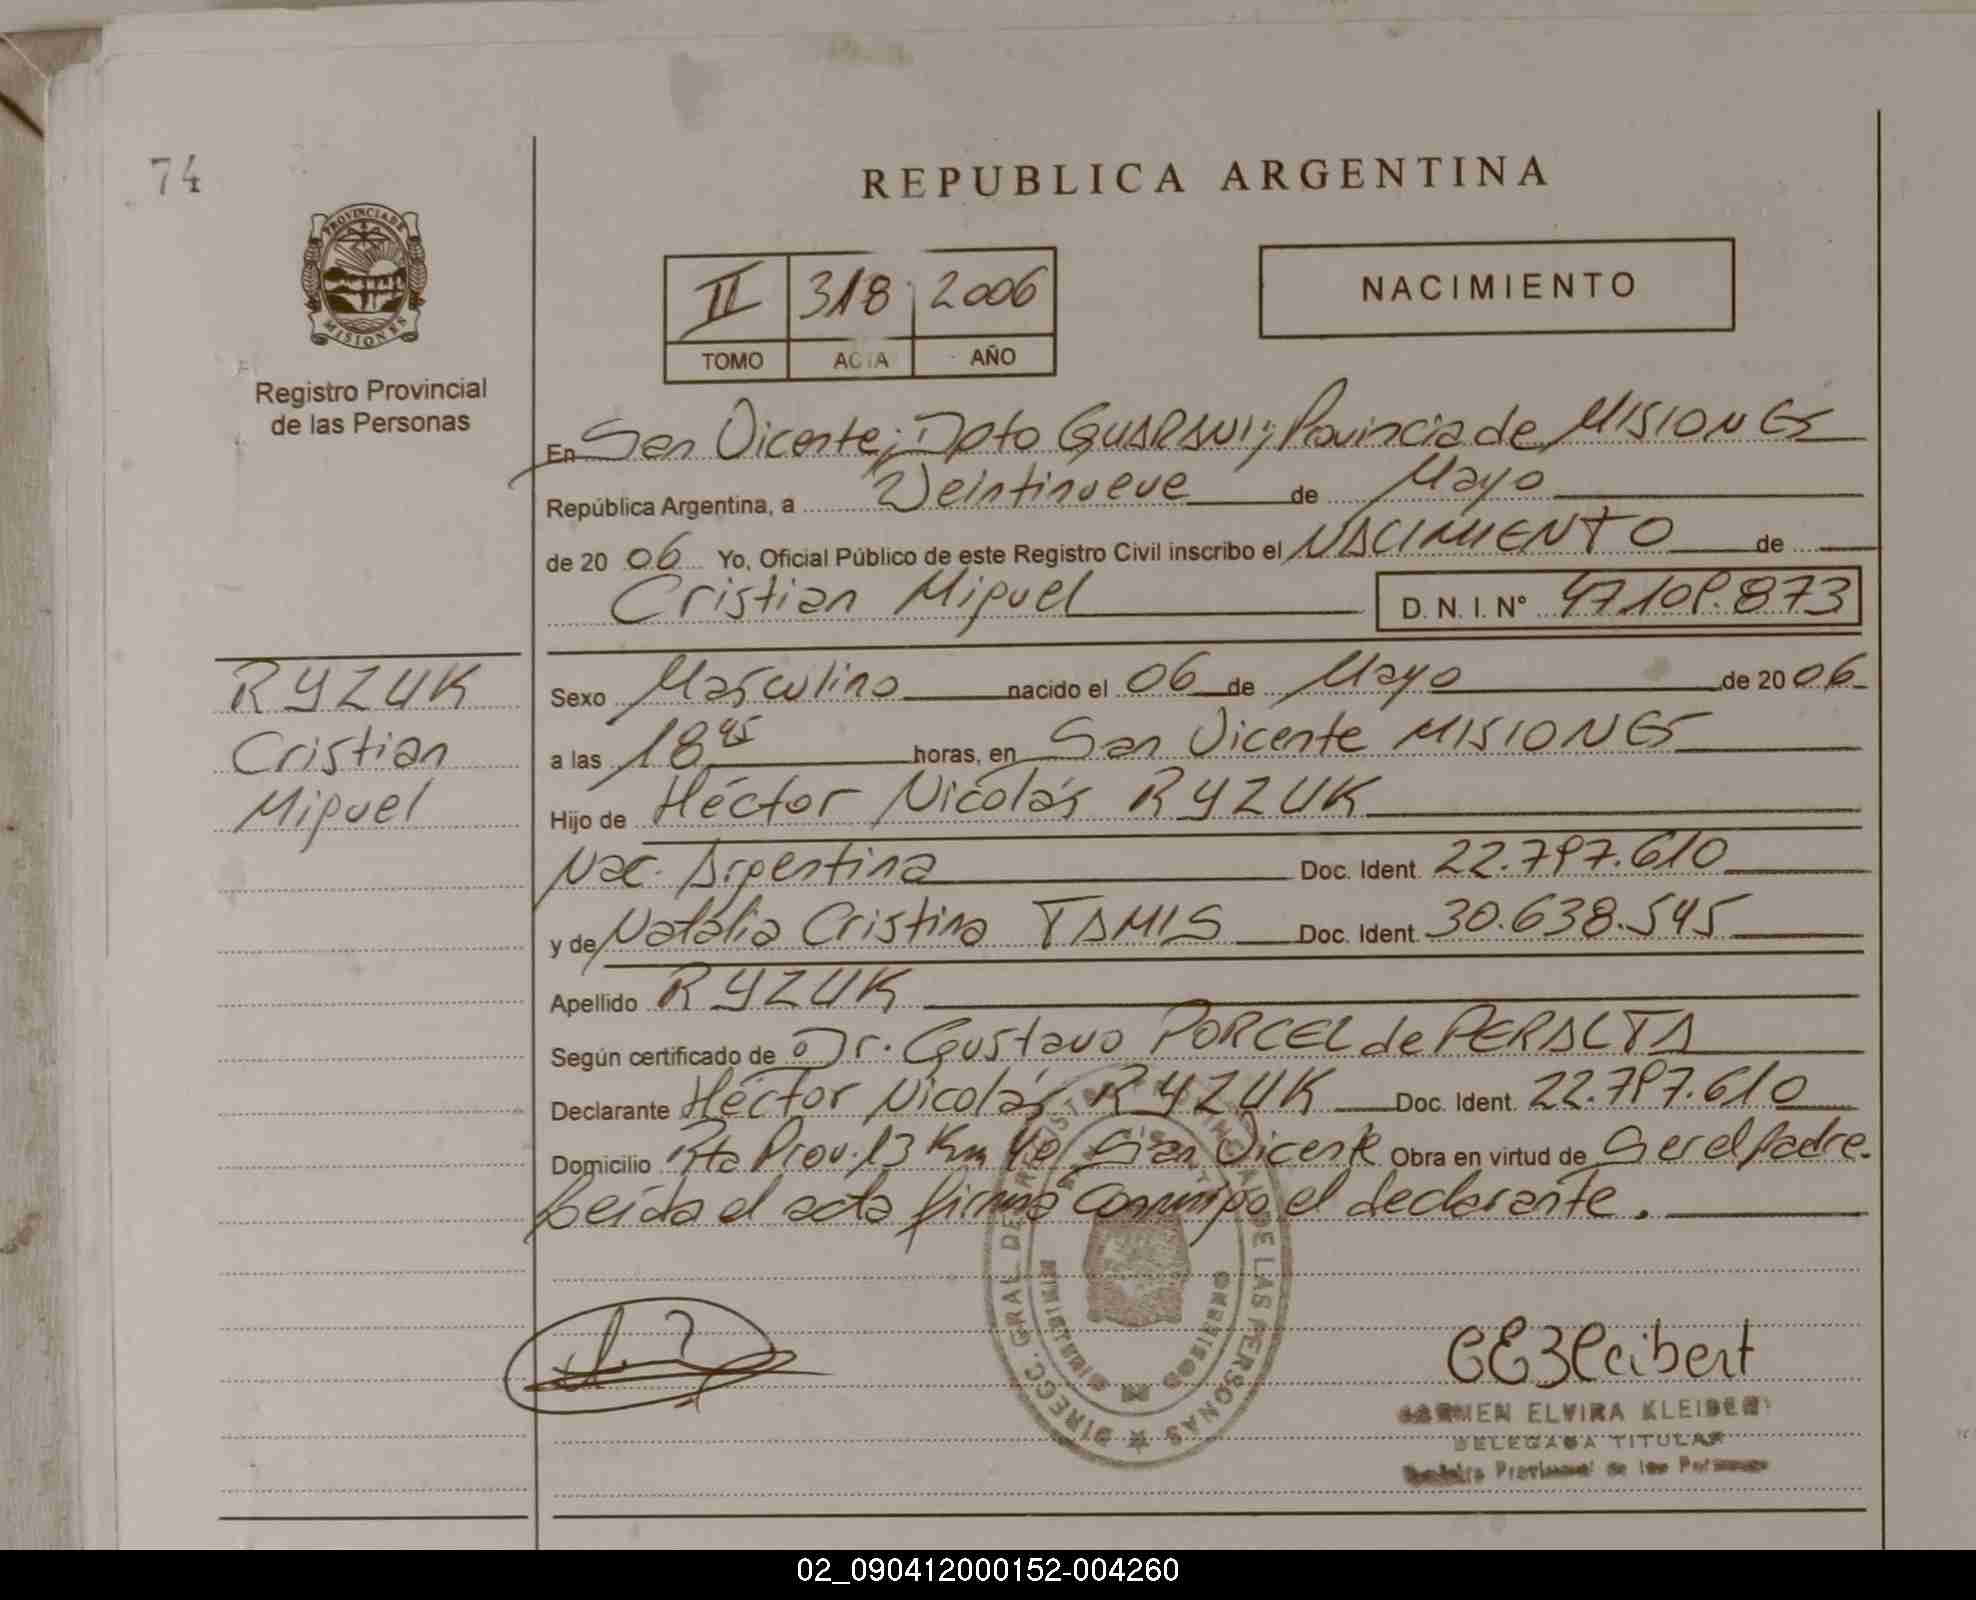 74
REPUBLICA ARGENTINA
PROVINCIA DE
MISIONES
Registro Provincial
de las Personas
II 318 2006
TOMO ACTA AÑO
NACIMIENTO
En San Vicente; Dpto GUARANI; Provincia de MISIONES
República Argentina, a Veintinueve de Mayo
de 2006 Yo, Oficial Público de este Registro Civil inscribo el NACIMIENTO de
Cristian Miguel D. N. I. Nº 47.109.873
RYZUK
Cristian
Miguel
Sexo Masculino nacido el 06 de Mayo de 2006
a las 18 45 horas, en San Vicente MISIONES
Hijo de Héctor Nicolás RYZUK
Nac. Argentina Doc. Ident. 22.797.610
y de Natalia Cristina TAMIS Doc. Ident. 30.638.545
Apellido RYZUK
Según certificado de Dr. Gustavo PORCEL de PERALTA
Declarante Héctor Nicolás RYZUK Doc. Ident. 22.797.610
Domicilio Rta Prov. 13 Km 40 San Vicente Obra en virtud de Ser el padre.
Leída el acta firma conmigo el declarante.
DIRECC. GRAL. DE DE LAS PERSONAS
MISIONES
CEKleibert
CARMEN ELVIRA KLEIBERT
DELEGADA TITULAR
Registro Provincial de las Personas
02_090412000152-004260